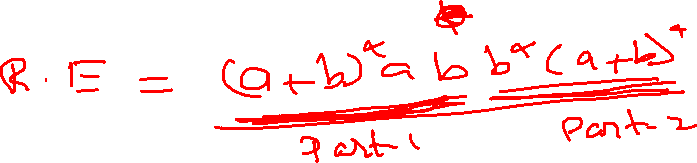 R.E = (a+b)*a b b*(a+b)*
Part 1 Part 2